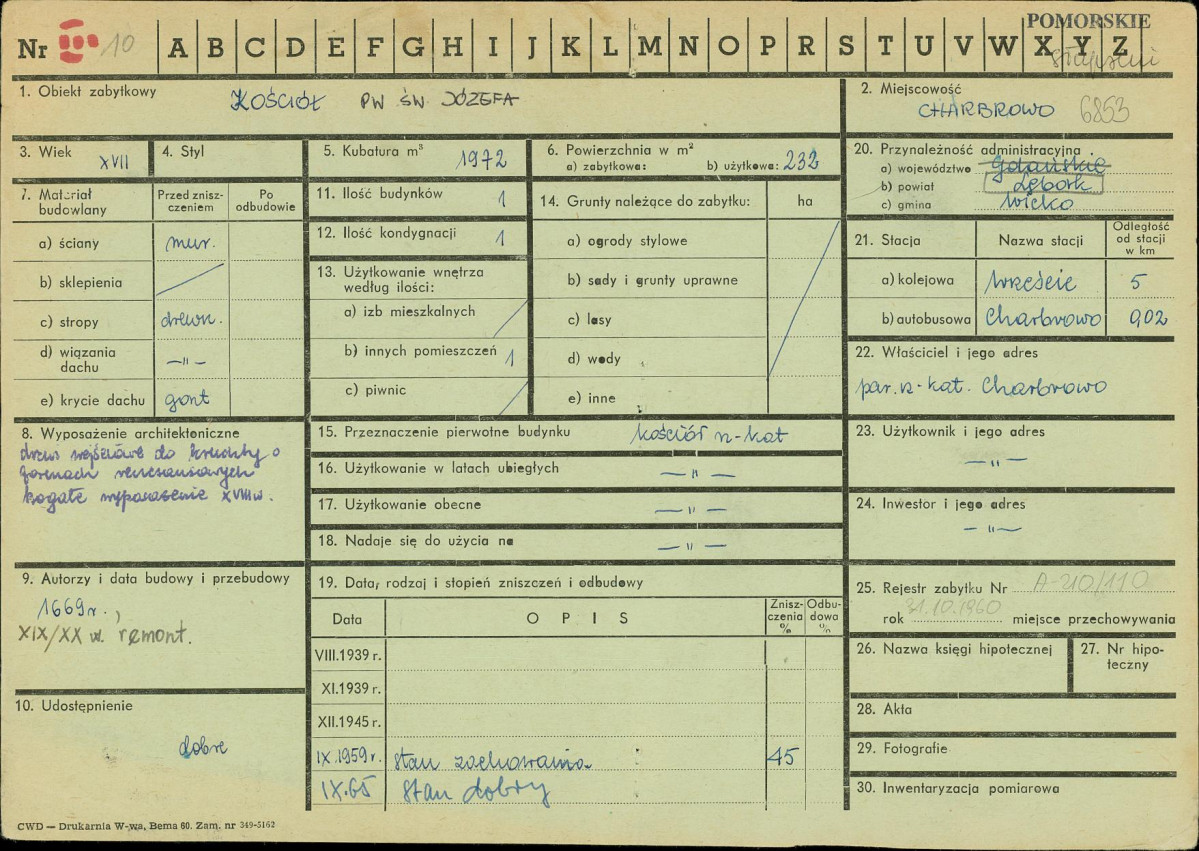 POMORSKIE
Nr III 10 A B C D E F G H I J K L M N O P R S T U V W X Y Z
1. Obiekt zabytkowy KOŚCIÓŁ PW ŚW. JÓZEFA
2. Miejscowość
CHARBROWO 6853
3. Wiek XVII
4. Styl
5. Kubatura m³ 1972
6. Powierzchnia w m²
a) zabytkowa: b) użytkowa: 232
7. Materiał budowlany
Przed zniszczeniem
Po odbudowie
a) ściany mur.
b) sklepienia
c) stropy drewn.
d) wiązania dachu —"—
e) krycie dachu gont
8. Wyposażenie architektoniczne
drzwi wejściowe do kruchty o
formach renesansowych
bogate wyposażenie XVIII w.
9. Autorzy i data budowy i przebudowy
1669 r.,
XIX/XX w. remont.
10. Udostępnienie
dobre
11. Ilość budynków 1
12. Ilość kondygnacji 1
13. Użytkowanie wnętrza
według ilości:
a) izb mieszkalnych
b) innych pomieszczeń 1
c) piwnic
14. Grunty należące do zabytku: ha
a) ogrody stylowe
b) sady i grunty uprawne
c) lasy
d) wody
e) inne
15. Przeznaczenie pierwotne budynku kościół rz-kat
16. Użytkowanie w latach ubiegłych —"—
17. Użytkowanie obecne —"—
18. Nadaje się do użycia na —"—
19. Data, rodzaj i stopień zniszczeń i odbudowy
Data OPIS Zniszczenia % Odbudowa %
VIII.1939 r.
XI.1939 r.
XII.1945 r.
IX.1959 r. stan zachowania 45
IX.65 stan dobry
20. Przynależność administracyjna
a) województwo Gdańskie
b) powiat Lębork
c) gmina Wicko
21. Stacja Nazwa stacji Odległość od stacji w km
a) kolejowa Wrzeście 5
b) autobusowa Charbrowo 0,02
22. Właściciel i jego adres
par. rz-kat. Charbrowo
23. Użytkownik i jego adres
—"—
24. Inwestor i jego adres
—"—
25. Rejestr zabytku Nr A-210/110
rok 31.10.1960 miejsce przechowywania
26. Nazwa księgi hipotecznej
27. Nr hipoteczny
28. Akta
29. Fotografie
30. Inwentaryzacja pomiarowa
CWD — Drukarnia W-wa, Bema 60. Zam. nr 349-5162